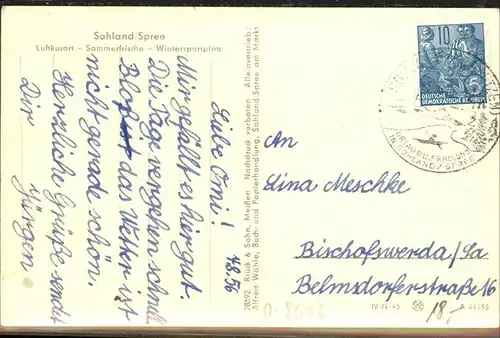 Sohland/Spree
Luftkurort - Sommerfrische - Wintersportplatz
4.8.56
Liebe Omi!
Mir gefällt es hier gut.
Die Tage vergehen schnell.
Bloß ist das Wetter
nicht gerade schön.
Herzliche Grüße sendet
Dir Jürgen.
28592 Brück & Sohn, Meißen Nachdruck verboten Alleinvertrieb:
Alfred Wähle, Buch- und Papierhandlung, Sohland/Spree am Markt
10
DEUTSCHE
DEMOKRATISCHE REPUBLIK
URLAUB U. ERHOLUNG
IN SOHLAND/SPREE
An
Lina Meschke
Bischofswerda/Sa
Belmsdorferstraße 16
IV-14-45
A 44/56
18,-